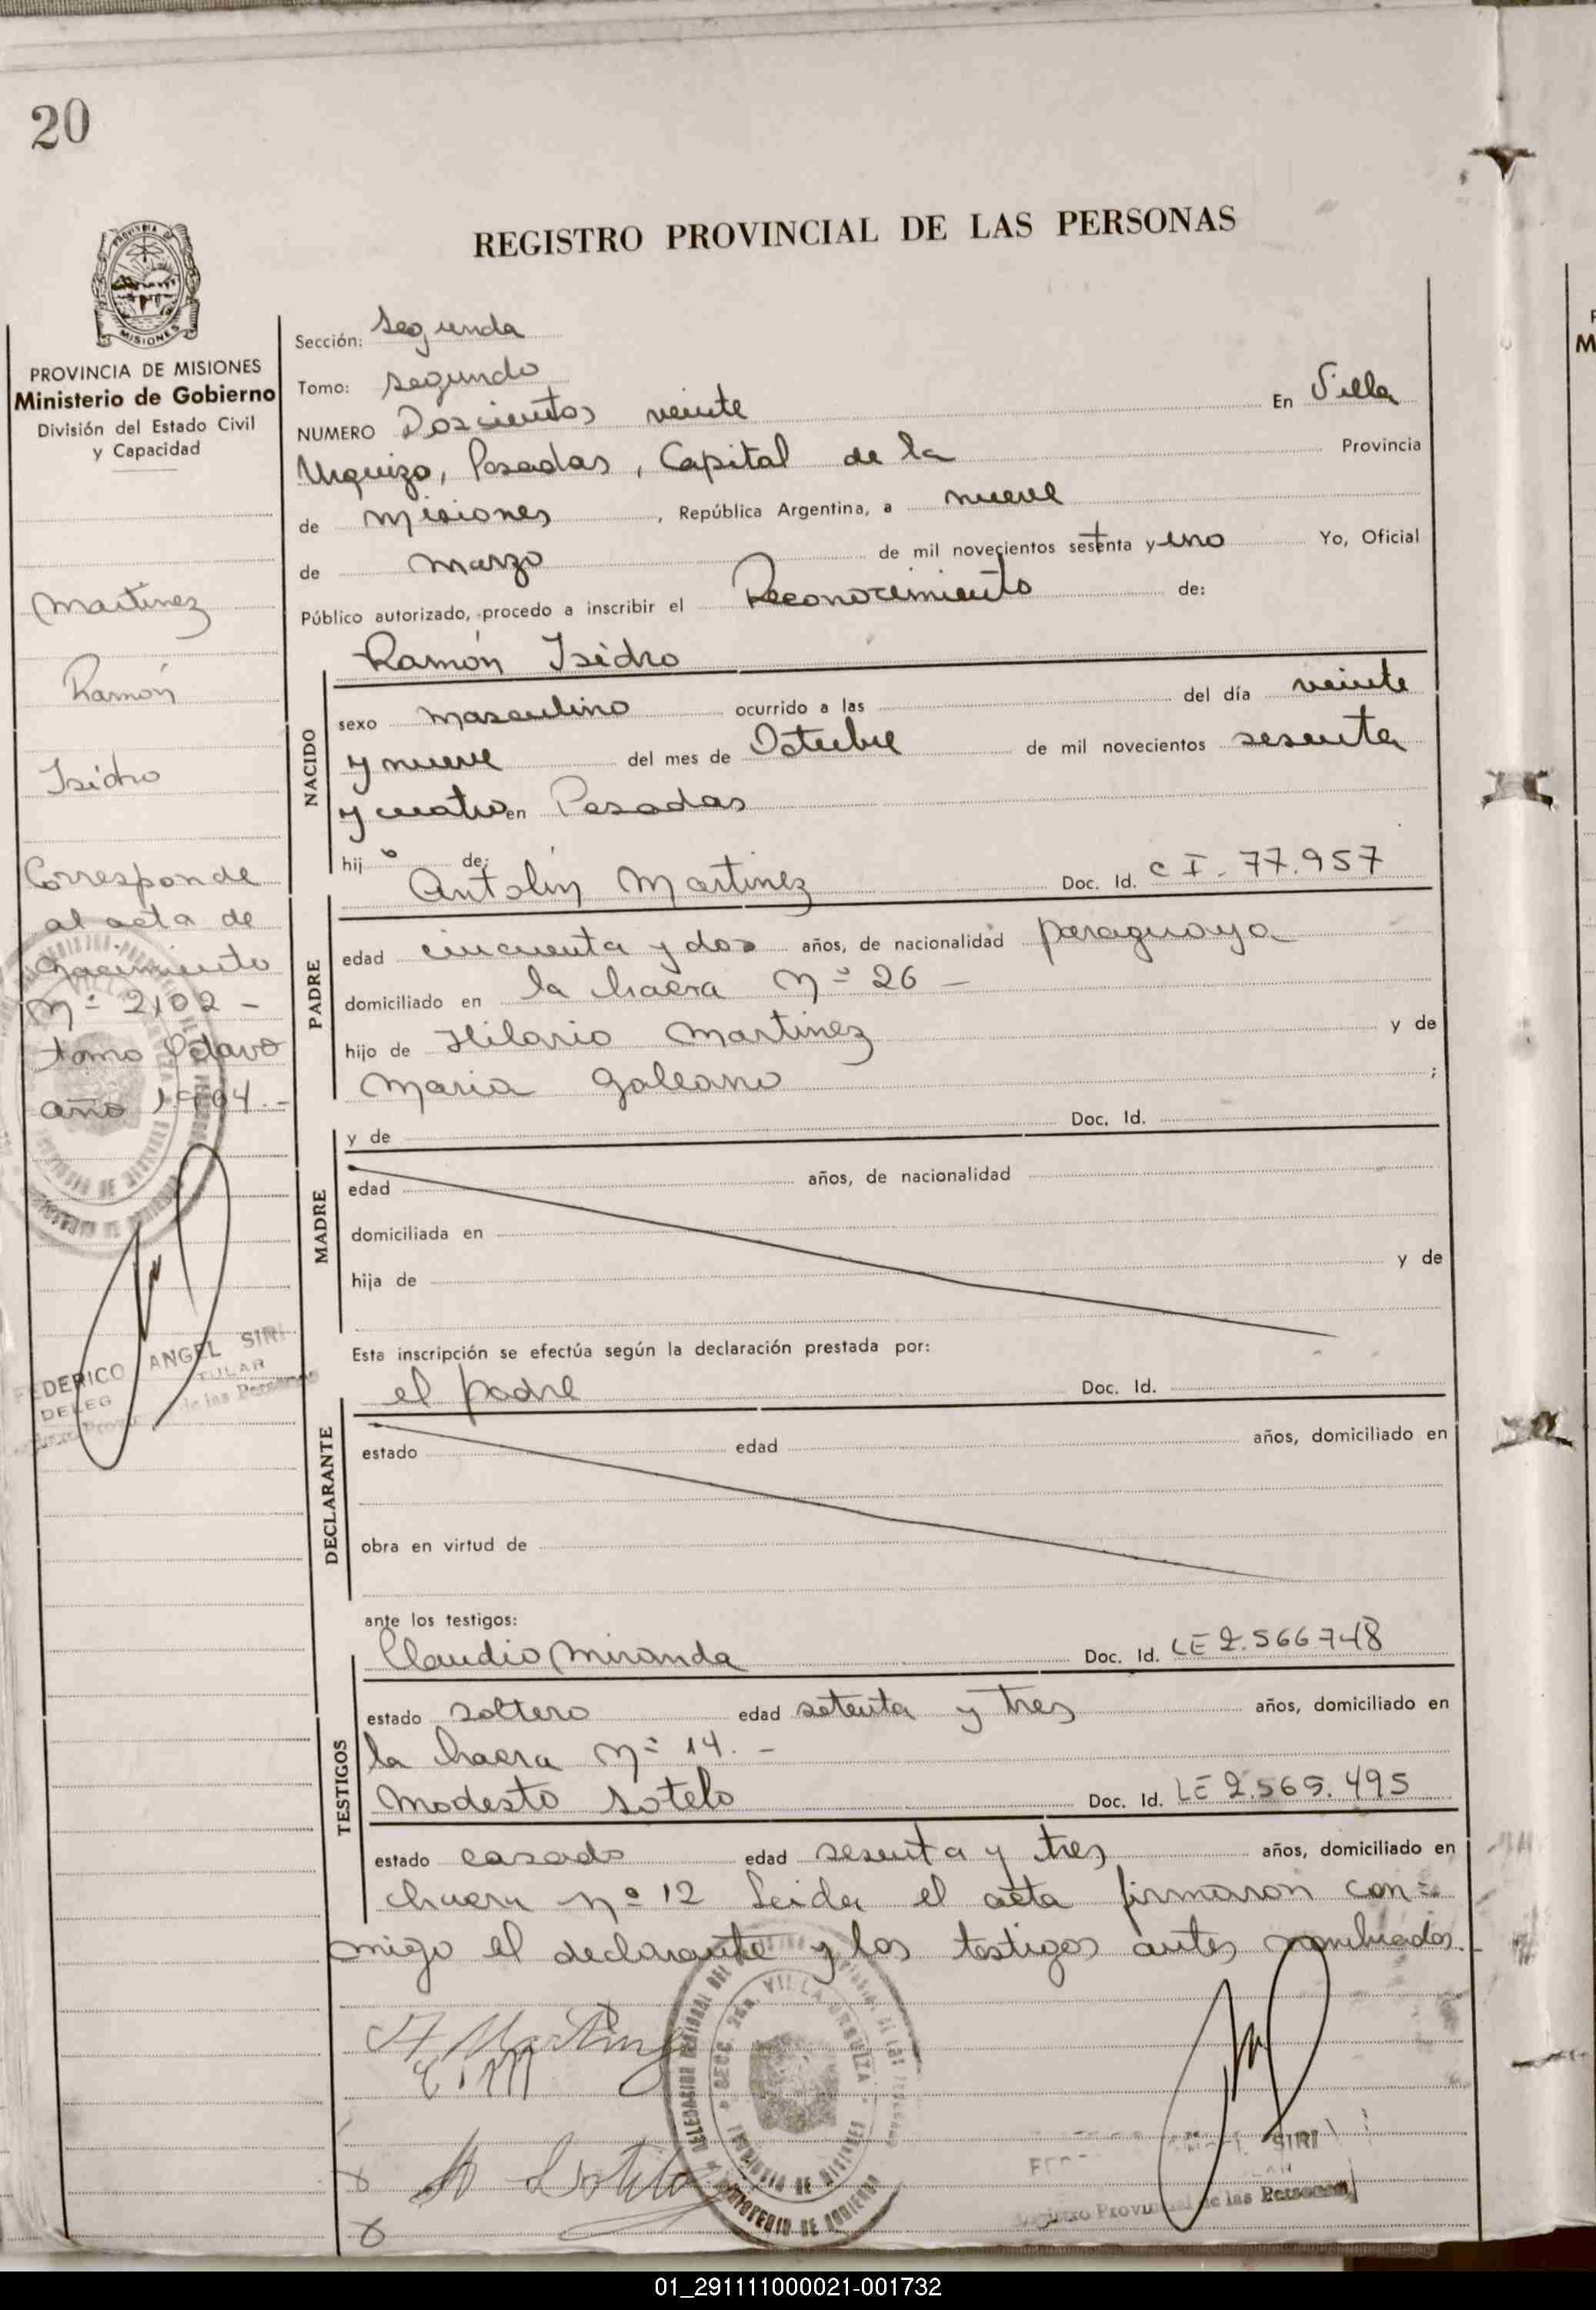 20
REGISTRO PROVINCIAL DE LAS PERSONAS
PROVINCIA DE MISIONES
Ministerio de Gobierno
División del Estado Civil
y Capacidad
Martinez
Ramón
Isidro
Corresponde
al acta de
Nacimiento
Nº 2102 -
tomo Octavo
año 1964.-
FEDERICO ANGEL SIRI
Sección: segunda
Tomo: segundo
NUMERO Doscientos veinte En Villa
Urquiza, Posadas, Capital de la Provincia
de Misiones, República Argentina, a nueve
de marzo de mil novecientos setenta y uno Yo, Oficial
Público autorizado, procedo a inscribir el Reconocimiento de:
Ramón Isidro
NACIDO
sexo masculino ocurrido a las del día veinte
y nueve del mes de Octubre de mil novecientos sesenta
y cuatro en Posadas
hijo de:
Antolín Martinez Doc. Id. C I. 77.957
PADRE
edad cincuenta y dos años, de nacionalidad paraguaya
domiciliado en la chacra Nº 26 -
hijo de Hilario Martinez y de
Maria Galeano ;
y de Doc. Id.
MADRE
edad años, de nacionalidad
domiciliada en
hija de y de
Esta inscripción se efectúa según la declaración prestada por:
el padre Doc. Id.
DECLARANTE
estado edad años, domiciliado en
obra en virtud de
ante los testigos:
Claudio Miranda Doc. Id. LE 2.566.748
TESTIGOS
estado soltero edad setenta y tres años, domiciliado en
la chacra Nº 14. -
Modesto Sotelo Doc. Id. LE 2.565.495
estado casado edad sesenta y tres años, domiciliado en
chacra nº 12 Leida el acta firmaron con=
migo el declarante y los testigos antes nombrados.
A Martinez
C. M
M Sotelo
SIRI
Registro Provincial de las Personas
01_291111000021-001732